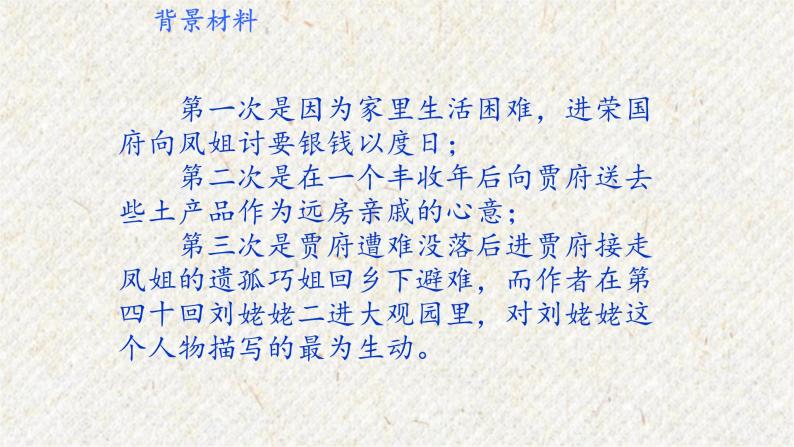 背景材料
第一次是因为家里生活困难，进荣国
府向凤姐讨要银钱以度日；
第二次是在一个丰收年后向贾府送去
些土产品作为远房亲戚的心意；
第三次是贾府遭难没落后进贾府接走
凤姐的遗孤巧姐回乡下避难，而作者在第
四十回刘姥姥二进大观园里，对刘姥姥这
个人物描写的最为生动。